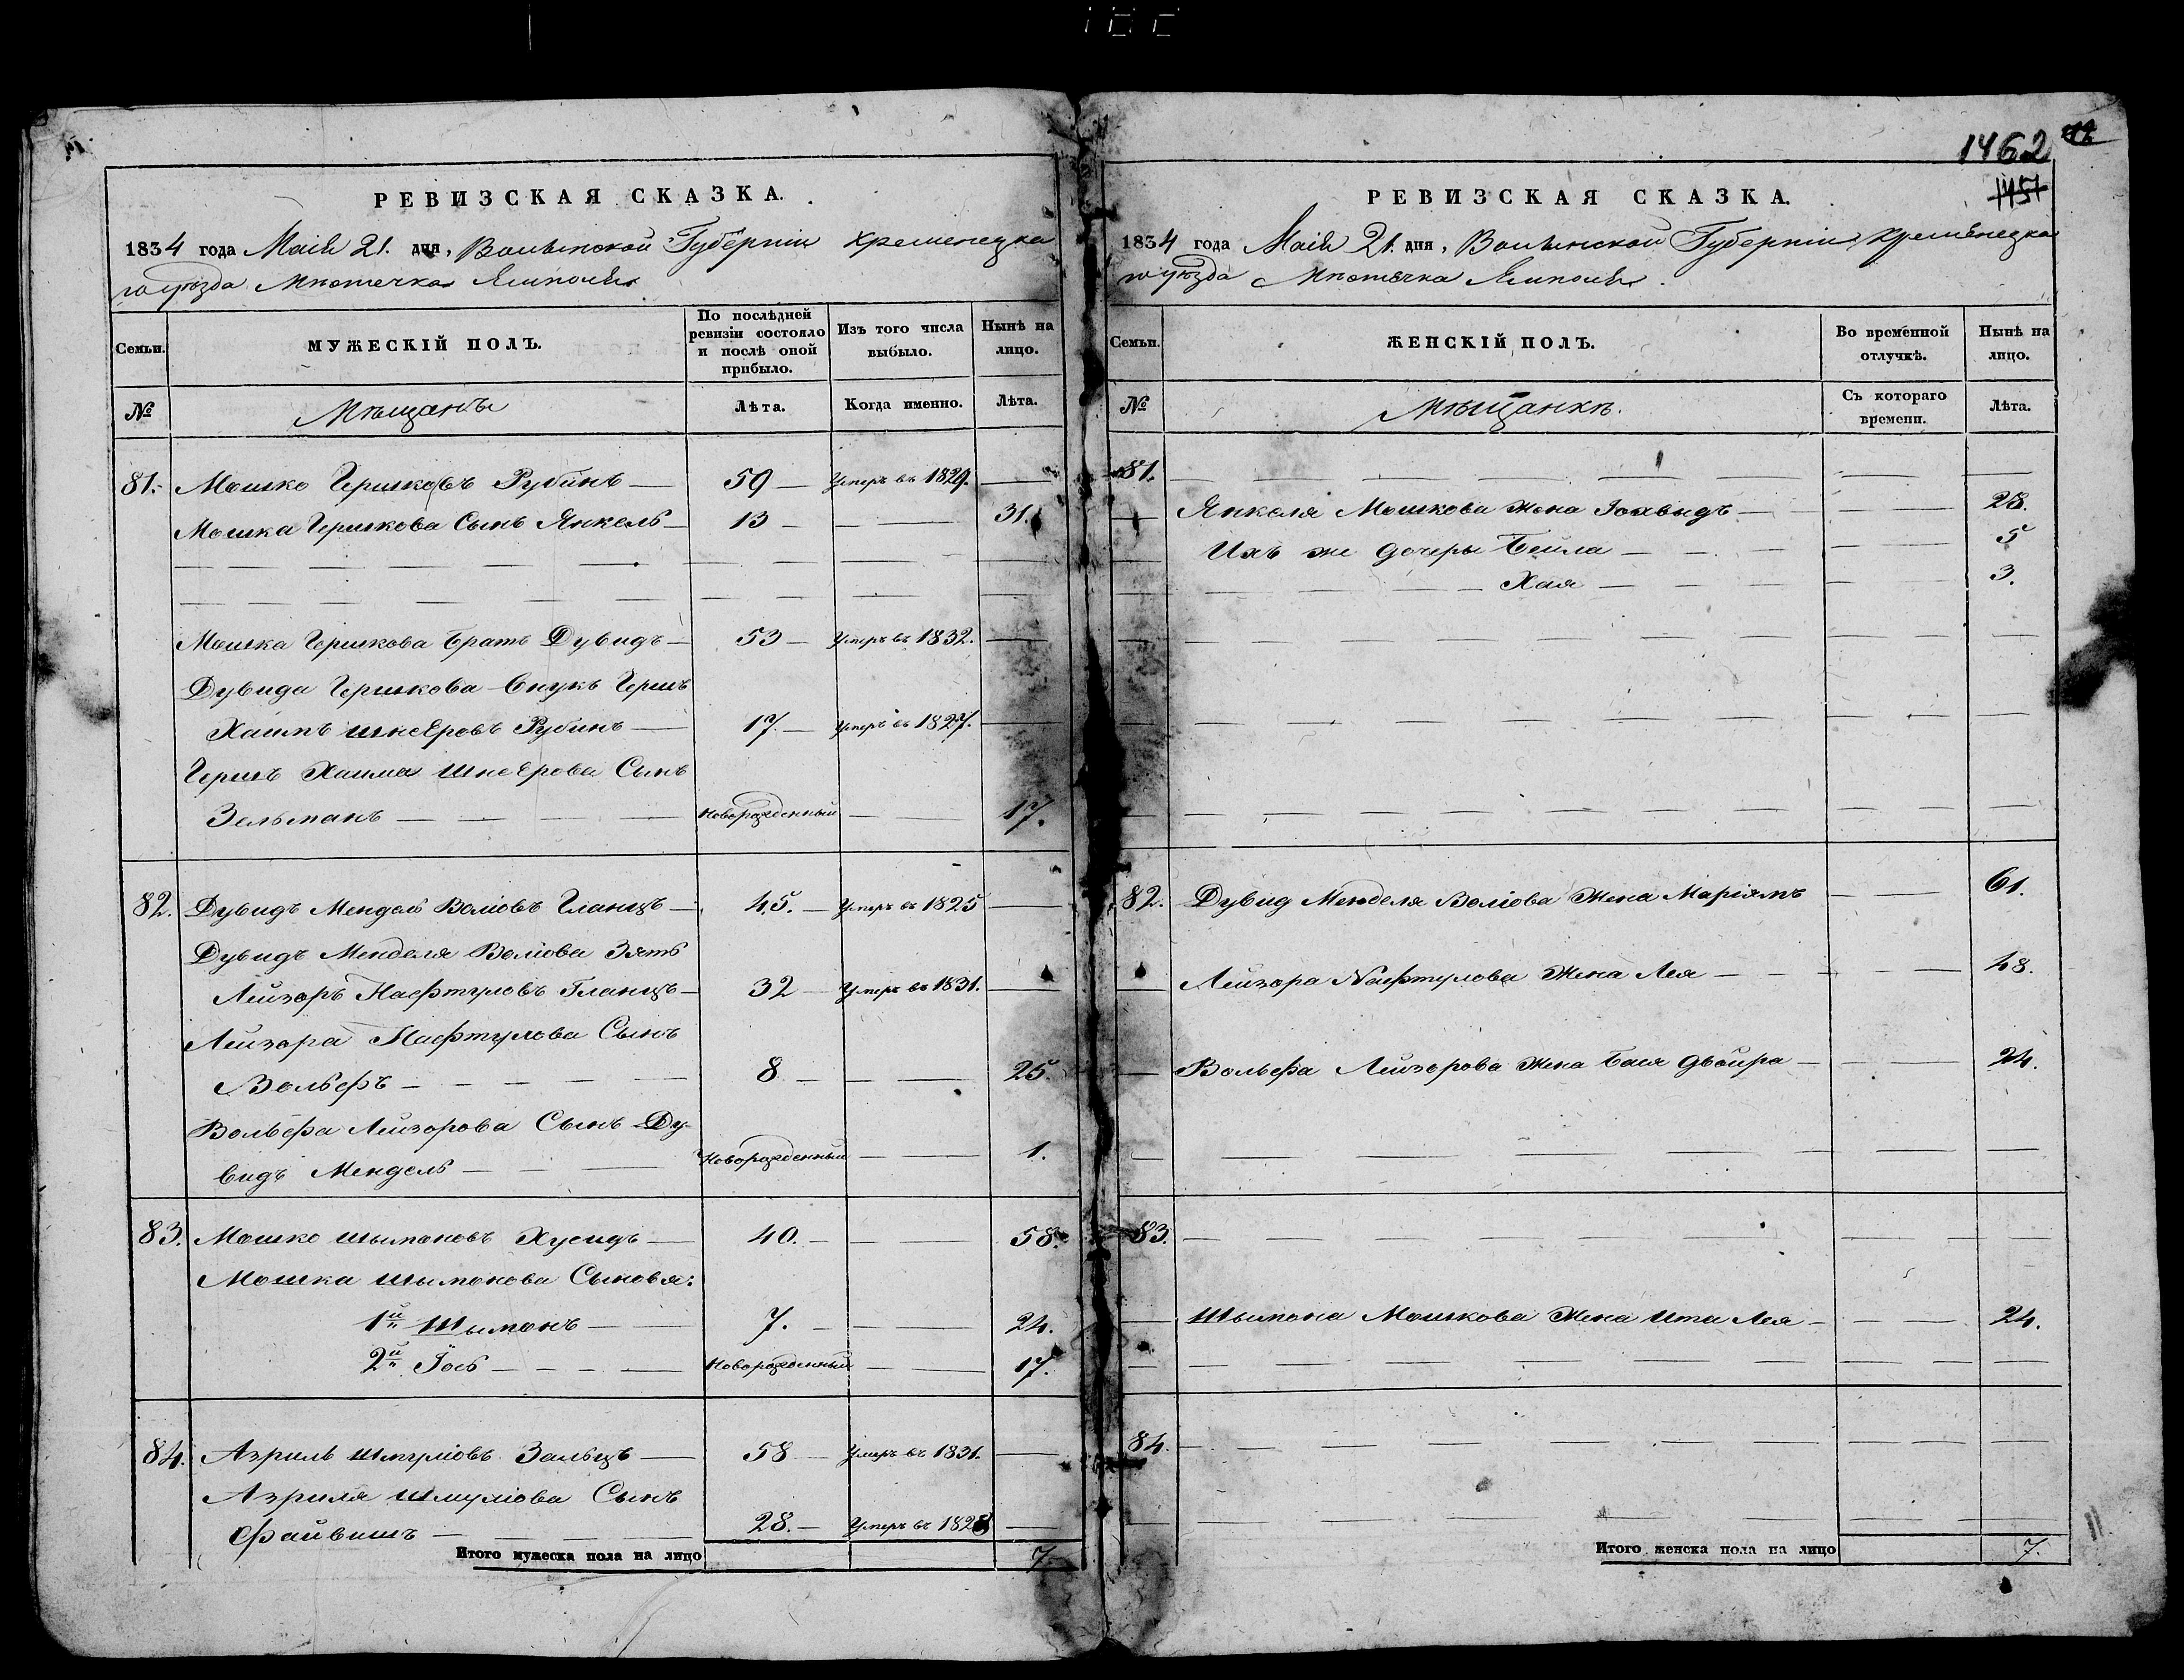 1462
1451
РЕВИЗСКАЯ СКАЗКА.
1834 года Маія 21. дня, Волынской Губерніи Кременецка
го уѣзда Мѣстечка Ямполя
Семьи.
МУЖЕСКІЙ ПОЛЪ.
По послѣдней ревизіи состояло и послѣ оной прибыло.
Изъ того числа выбыло.
Нынѣ на лицо.
№
Мѣщанъ
Лѣта.
Когда именно.
Лѣта.
81. Мошко Гершковъ Рубинъ — 59 — Умеръ въ 1829. —
Мошка Гершкова Сынъ Янкель — 13 — — 31.
Мошка Гершкова Братъ Дувидъ — 53 — Умеръ въ 1832. —
Дувида Гершкова Внукъ Гершъ
Хаимъ Шнееровъ Рубинъ — 17. — Умеръ въ 1827. —
Гершъ Хаима Шнеерова Сынъ
Зельманъ — Новорожденный — 17.
82. Дувидъ Мендель Волiовъ Гланцъ — 45. — Умеръ въ 1825 —
Дувидъ Менделя Волiова Зять
Лейзоръ Нафтуловъ Гланцъ — 32 — Умеръ въ 1831. —
Лейзора Нафтулова Сынъ
Вольфъ — 8 — — 25.
Вольфа Лейзорова Сынъ Ду-
видъ Мендель — Новорожденный — 1.
83. Мошко Шымоновъ Хусидъ — 40. — — 58.
Мошка Шымонова Сыновя:
1й Шымонъ — 7. — — 24.
2й Іось — Новорожденный — 17.
84. Азриль Шмулiовъ Зальцъ — 58 — Умеръ въ 1831. —
Азриля Шмулiова Сынъ
Файвишъ — 28. — Умеръ въ 1828 —
Итого мужеска пола на лицо 7.
РЕВИЗСКАЯ СКАЗКА.
1834 года Маія 21. дня, Волынской Губерніи Кременецка
го уѣзда Мѣстечка Ямполя.
Семьи.
ЖЕНСКІЙ ПОЛЪ.
Во временной отлучкѣ.
Нынѣ на лицо.
№
Мѣщанкъ.
Съ котораго времени.
Лѣта.
81.
Янкеля Мошкова жена Іохвыдъ — 28.
Ихъ же дочеры Бейла — 5
Хая — 3.
82. Дувид Менделя Волiова Жена Марiямъ — 61.
Лейзора Нафтулова Жена Лея — 48.
Вольфа Лейзорова Жена Бася Двойра — 24.
83.
Шымона Мошкова Жена Ита Лея — 24.
84.
Итого женска пола на лицо 7.